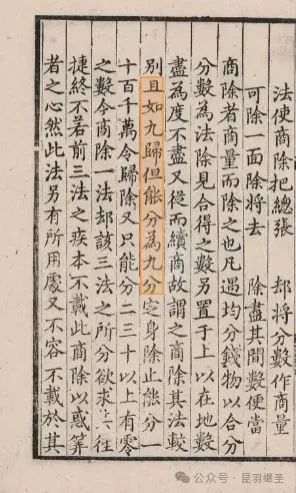 法使商除把總張　却將分數作商量
可除一面除將去　除盡其間數便當
商除者商量而除之也凡遇均分錢物以合分
分數為法除見合得之數另置于上以在地數
盡為度不盡又從而續商故謂之商除其法較
別且如九歸但能分為九分定身除止能分一
十百千萬令歸除又只能分二三十以上有零
之數今商除一法却該三法之所分欲求
捷終不若前三法之疾本不載此商除以惑算
者之心然此法另有所用處又不容不載於其
公众号·昆羽继圣